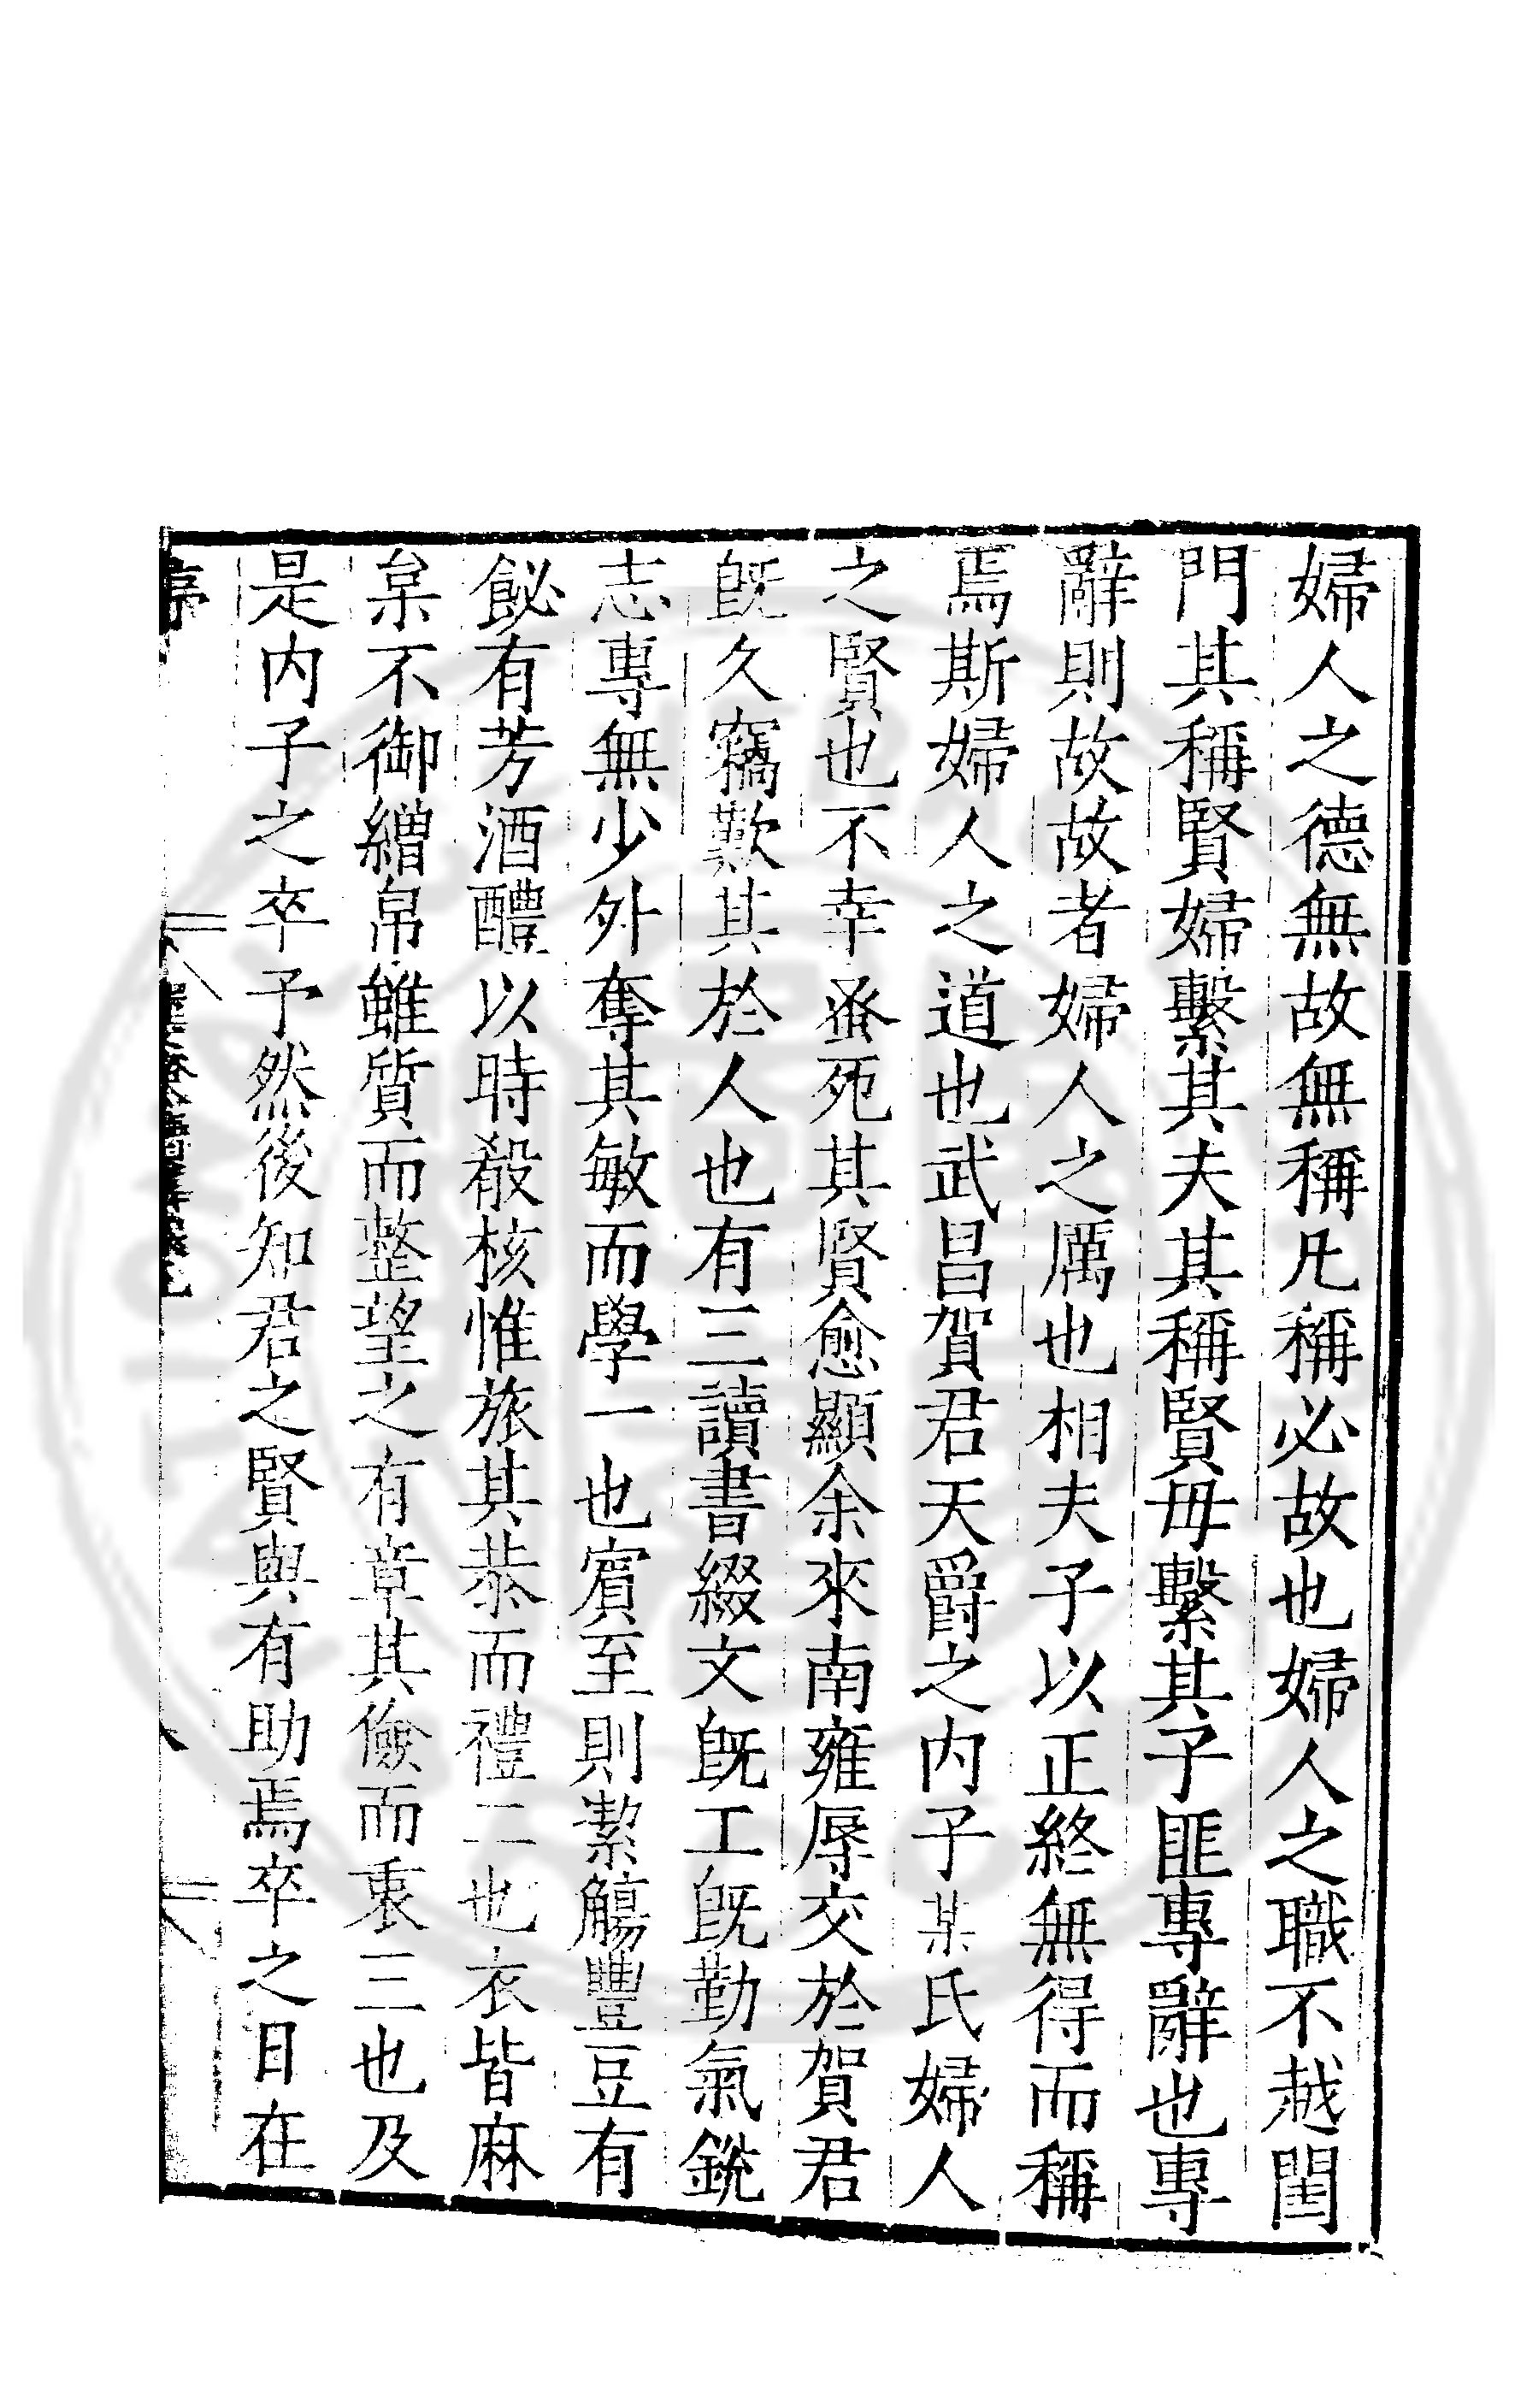 婦人之德無故無稱凡稱必故也婦人之職不越閨
門其稱賢婦繫其夫其稱賢母繫其子匪專辭也專
辭則故故者婦人之厲也相夫子以正終無得而稱
焉斯婦人之道也武昌賀君天爵之内子某氏婦人
之賢也不幸蚤死其賢愈顯余來南雍辱交於賀君
既久竊歎其於人也有三讀書綴文既工既勤氣銳
志專無少外奪其敏而學一也賓至則潔觴豐豆有
飶有芳酒醴以時殽核惟旅其恭而禮二也衣皆麻
枲不御繒帛雖質而整望之有章其儉而衷三也及
是内子之卒予然後知君之賢與有助焉卒之日在